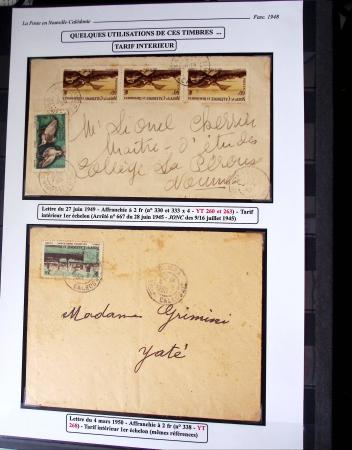 La Poste en Nouvelle-Calédonie
Faxc. 1948
QUELQUES UTILISATIONS DE CES TIMBRES ...
TARIF INTERIEUR
Mr Lionel Cherrier
Maître-d'études
Collège La Pérouse
Nouméa
Lettre du 27 juin 1949 - Affranchie à 2 fr (n° 330 et 333 x 4 - YT 260 et 263) - Tarif
intérieur 1er échelon (Arrêté n° 667 du 28 juin 1945 - JONC des 9/16 juillet 1945)
Madame Grimini
Yaté
Lettre du 4 mars 1950 - Affranchie à 2 fr (n° 338 - YT
268) - Tarif intérieur 1er échelon (mêmes références)